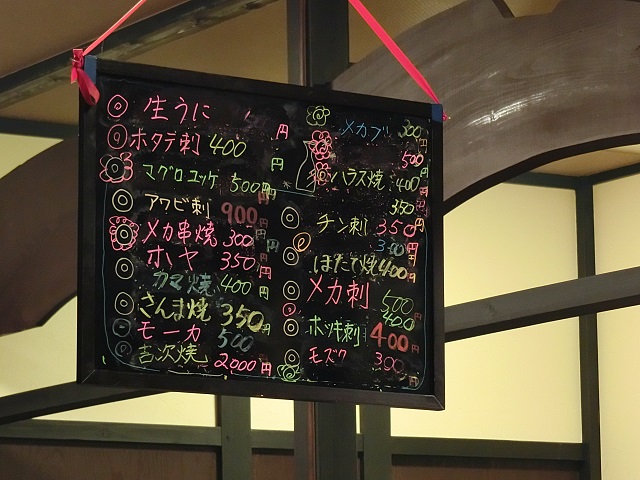 生うに 円
ホタテ刺 400円
マグロユッケ 500円
アワビ刺 900円
メカ串焼 300円
ホヤ 350円
カマ焼 400円
さんま焼 350円
モーカ 500円
吉次焼 2000円
メカブ 300円
500円
ハラス焼 400円
350円
チン刺 350円
300円
ほたて焼 400円
メカ刺 500円
400円
ホッキ刺 400円
モズク 300円